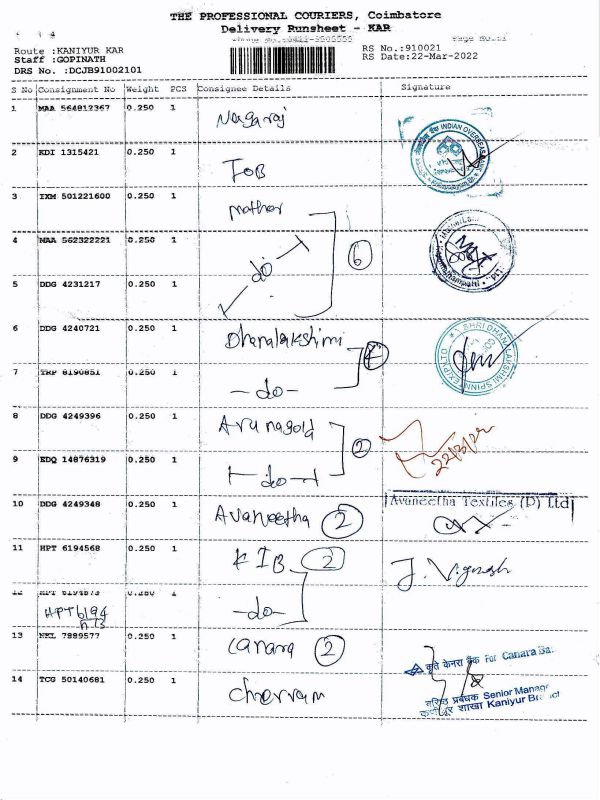 THE PROFESSIONAL COURIERS, Coimbatore
Delivery Runsheet - KAR
Route :KANIYUR KAR
Staff :GOPINATH
DRS No. :DCJB91002101
RS No.:910021
RS Date:22-Mar-2022
S No Consignment No Weight PCS Consignee Details Signature
1 MAA 564812367 0.250 1 Nagaraj
INDIAN OVERSEAS
2 KDI 1315421 0.250 1 IOB
3 IXM 501221600 0.250 1 mather
4 MAA 562322221 0.250 1 do 6
5 DDG 4231217 0.250 1
6 DDG 4240721 0.250 1 Dhanalakshimi
SHRI DHANALAKSHMI SPINN
7 TRP 8190851 0.250 1 -do-
8 DDG 4249396 0.250 1 Arunagold 2
22/3/22
9 EDQ 14876319 0.250 1 do
10 DDG 4249348 0.250 1 Avaneetha 2
Avaneetha Textiles (P) Ltd
11 HPT 6194568 0.250 1 KIB 2
J. Vignesh
12 0.250 1 -do-
HPT 6194
13 NKL 7889577 0.250 1 canara 2
कृते केनरा बैंक For Canara Ba
14 TCG 50140681 0.250 1
प्रबंधक Senior Manager
शाखा Kaniyur Br